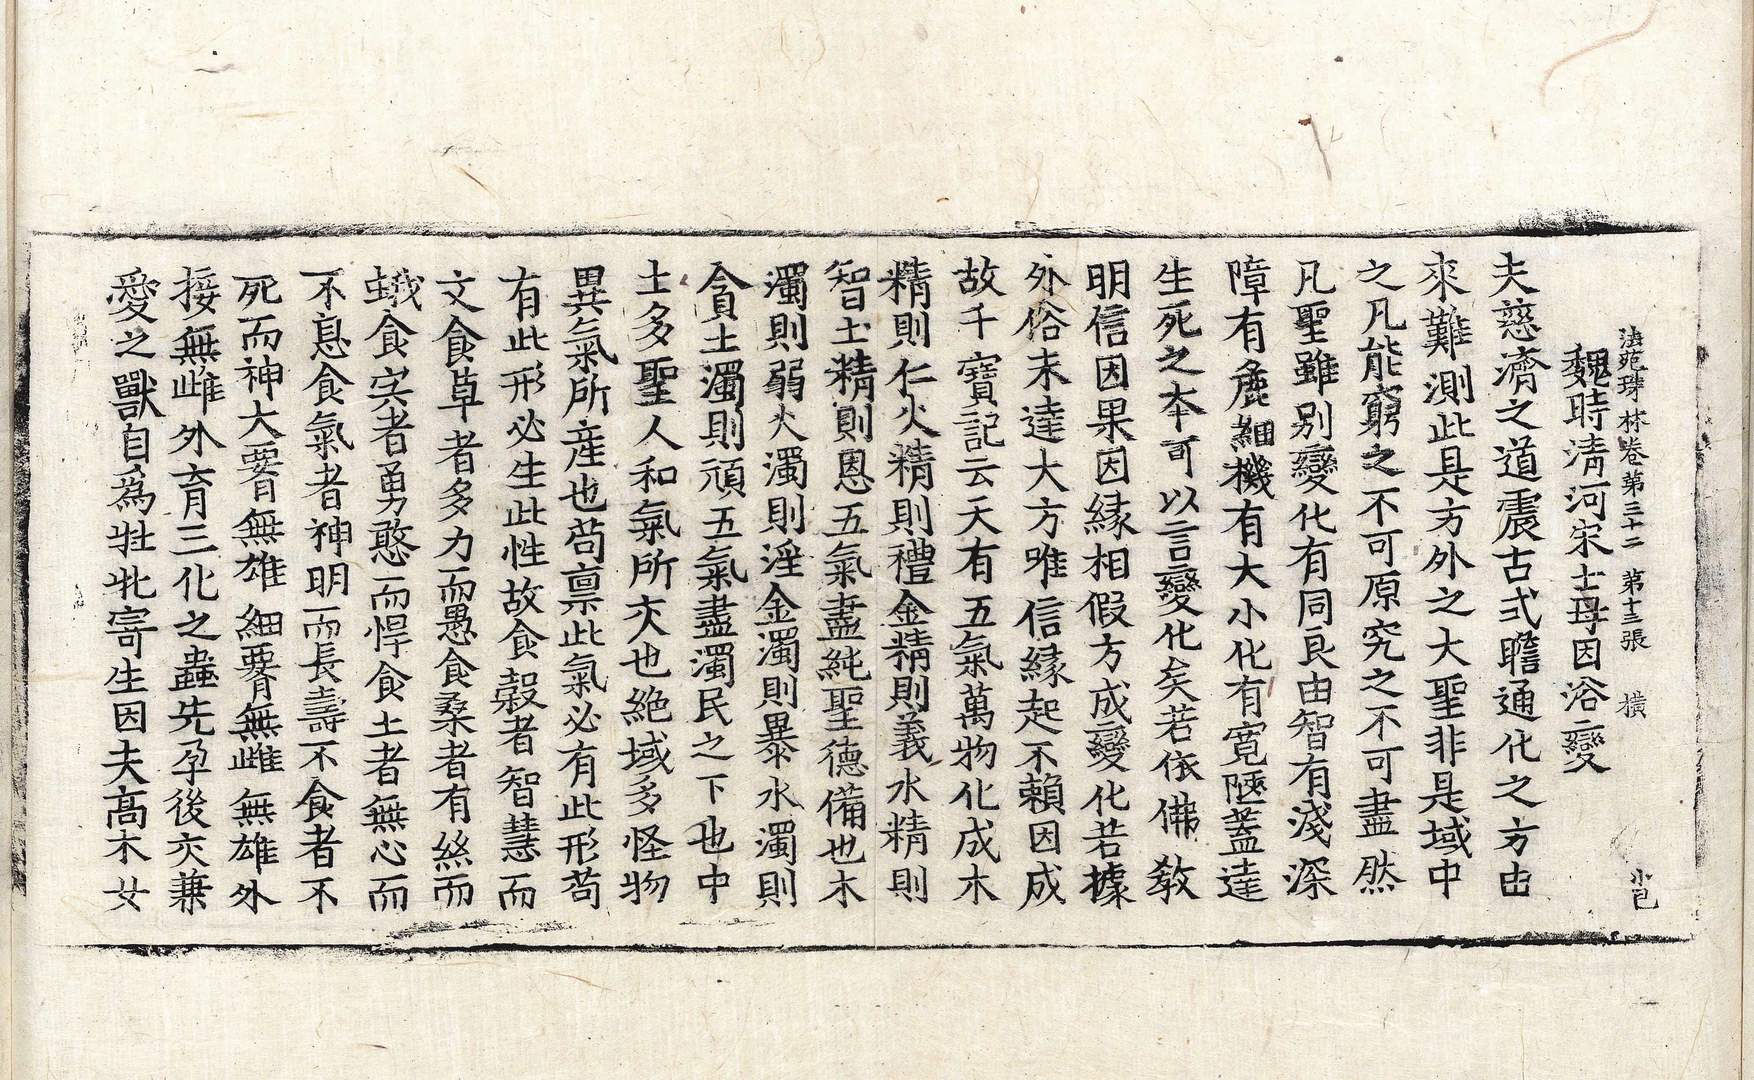 法苑珠林卷第三十二　第十三張　橫　小己
魏時清河宋士母因浴變
夫慈濟之道震古式瞻通化之方由
來難測此是方外之大聖非是域中
之凡能窮之不可原究之不可盡然
凡聖雖別變化有同良由智有淺深
障有麁細機有大小化有寬陿蓋達
生死之本可以言變化矣若依佛教
明信因果因緣相假方成變化若據
外俗未達大方唯信緣起不賴因成
故千寶記云天有五氣萬物化成木
精則仁火精則禮金精則義水精則
智土精則恩五氣盡純聖德備也木
濁則弱火濁則淫金濁則暴水濁則
貪土濁則頑五氣盡濁民之下也中
土多聖人和氣所交也絕域多怪物
異氣所產也苟禀此氣必有此形苟
有此形必生此性故食穀者智慧而
文食草者多力而愚食桑者有絲而
蛾食宍者勇憨而悍食土者無心而
不息食氣者神明而長壽不食者不
死而神大𦝫無雄細𦝫無雌無雄外
接無雌外育三化之蟲先孕後交兼
愛之獸自為牡牝寄生因夫高木女